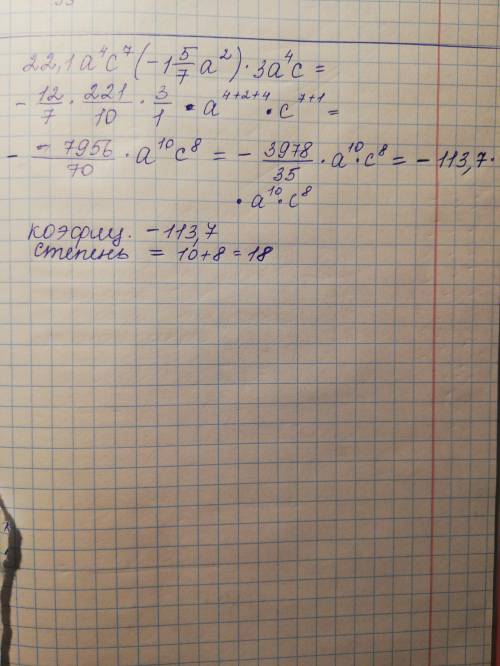 22,1a⁴c⁷(-1 5/7 a²)·3a⁴c =
- 12/7 · 221/10 · 3/1 · a⁴⁺²⁺⁴ · c⁷⁺¹ =
- - 7956/70 · a¹⁰c⁸ = - 3978/35 · a¹⁰·c⁸ = - 113,7·
· a¹⁰·c⁸
коэфиц. -113,7
степень = 10+8=18